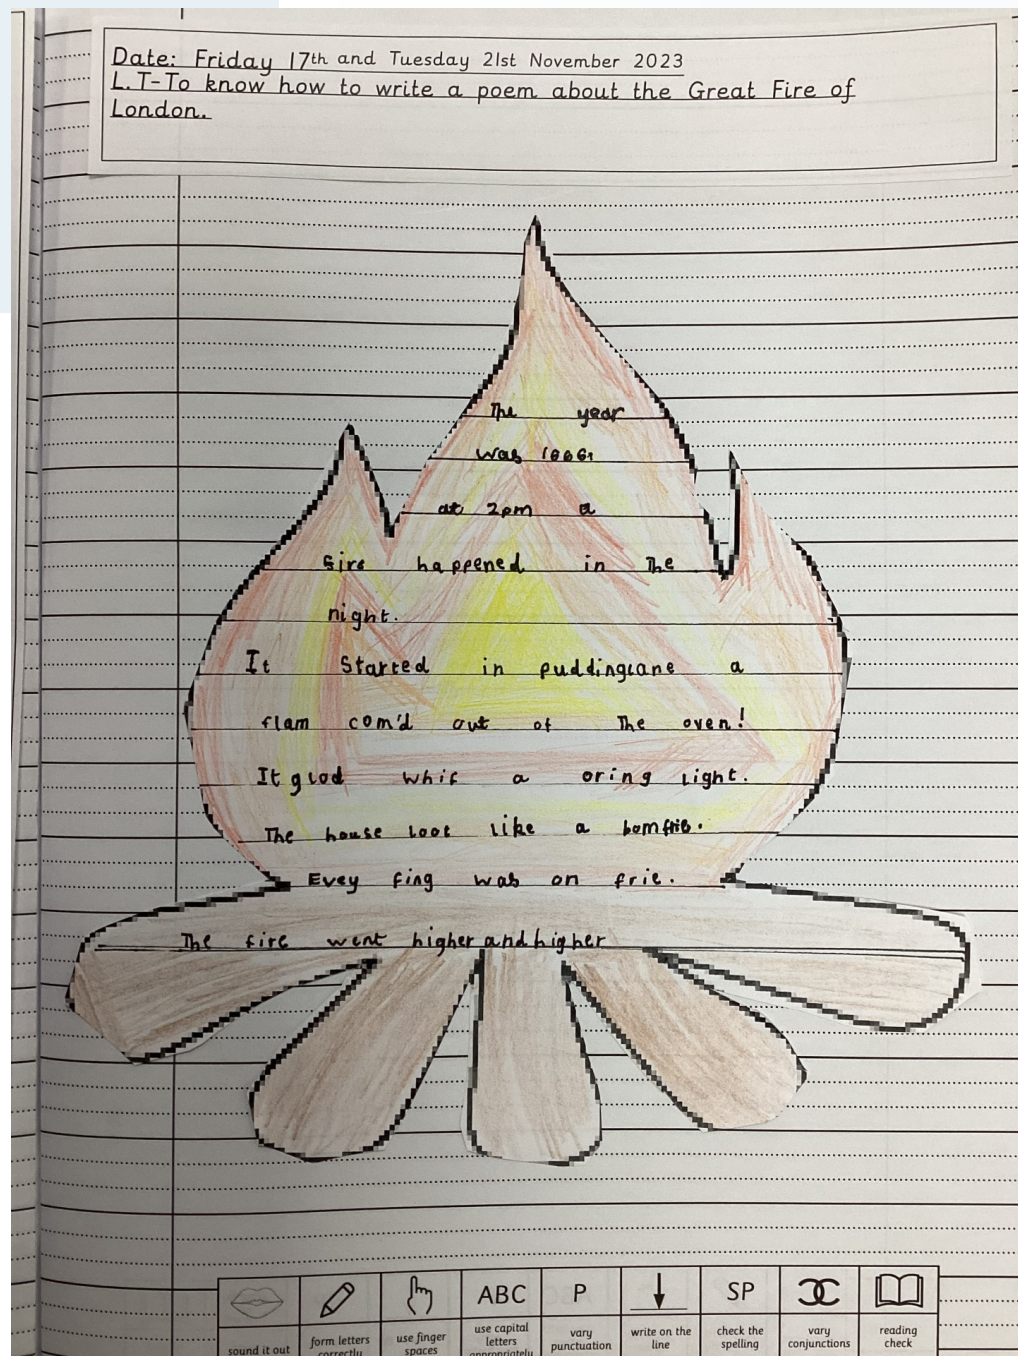 Date: Friday 17th and Tuesday 21st November 2023
L.T-To know how to write a poem about the Great Fire of
London.
The year
was 1666
at 2pm a
fire happened in The
night.
It Started in puddinglane a
flam com'd out of The oven!
It glod whif a oring light.
The house loot like a bomfrie.
Evey fing was on frie.
The fire went higher and higher
ABC P SP
sound it out
form letters correctly
use finger spaces
use capital letters appropriately
vary punctuation
write on the line
check the spelling
vary conjunctions
reading check